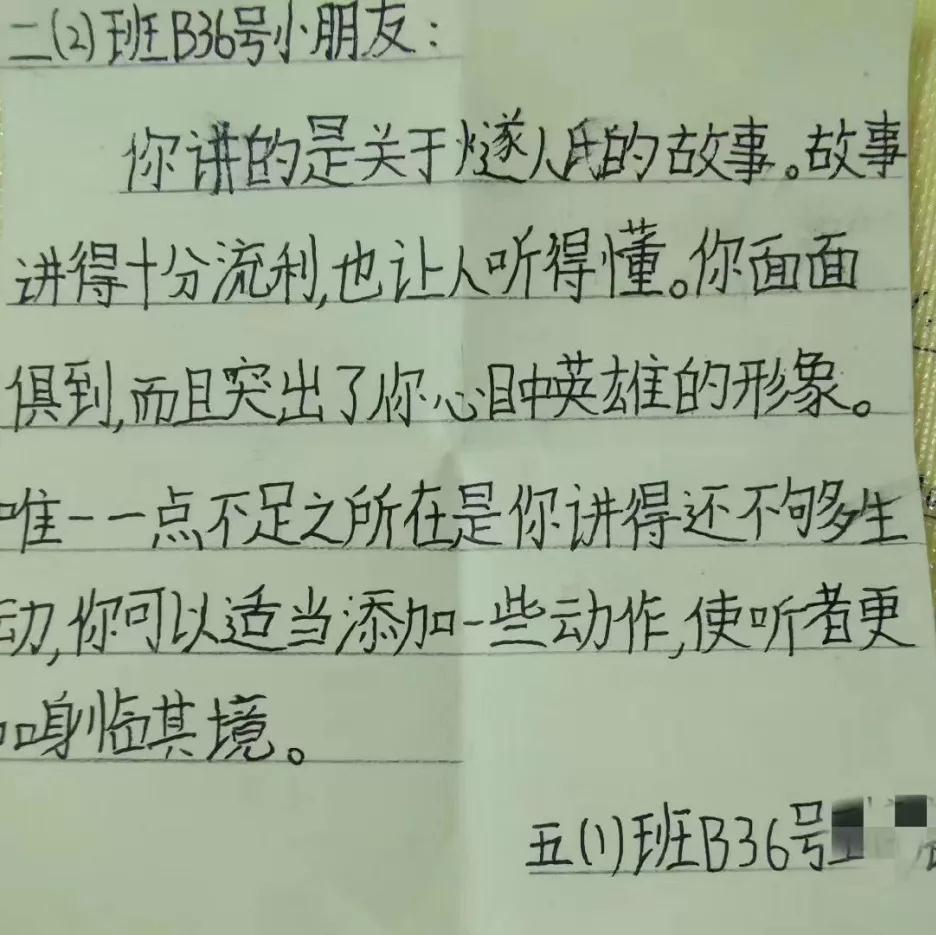 二(2)班B36号小朋友：
你讲的是关于燧人氏的故事。故事
讲得十分流利,也让人听得懂。你面面
俱到,而且突出了你心目中英雄的形象。
唯一一点不足之所在是你讲得还不够生
动,你可以适当添加一些动作,使听者更
加身临其境。
五(1)班B36号